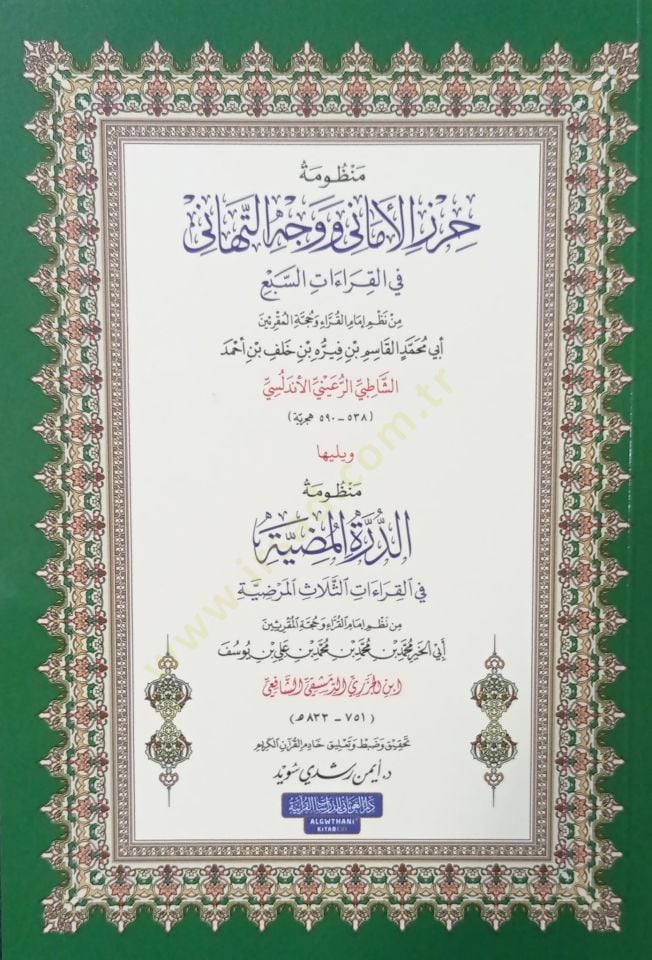 مَنْظُومَةُ
حِرْزِ الأَمَانِي وَوَجْهِ التَّهَانِي
فِي القِرَاءَاتِ السَّبْعِ
مِنْ نَظْمِ إِمَامِ القُرَّاءِ وَحُجَّةِ المُقْرِئِينَ
أَبِي مُحَمَّدٍ القَاسِمِ بْنِ فِيرُّه بْنِ خَلَفِ بْنِ أَحْمَدَ
الشَّاطِبِيِّ الرُّعَيْنِيِّ الأَنْدَلُسِيِّ
(٥٣٨ - ٥٩٠ هجرية)
ويليها
مَنْظُومَةُ
الدُّرَّةِ المُضِيَّةِ
فِي القِرَاءَاتِ الثَّلَاثِ المَرْضِيَّةِ
مِنْ نَظْمِ إِمَامِ القُرَّاءِ وَحُجَّةِ المُقْرِئِينَ
أَبِي الخَيْرِ مُحَمَّدِ بْنِ مُحَمَّدِ بْنِ مُحَمَّدِ بْنِ عَلِيِّ بْنِ يُوسُفَ
ابْنِ الجَزَرِيِّ الدِّمَشْقِيِّ الشَّافِعِيِّ
(٧٥١ - ٨٣٣ هـ)
تحقيق وضبط وتعليق خادم القرآن الكريم
د. أيمن رشدي سويد
دار الغوثاني للدراسات القرآنية
ALGWTHANI
KITABEVI